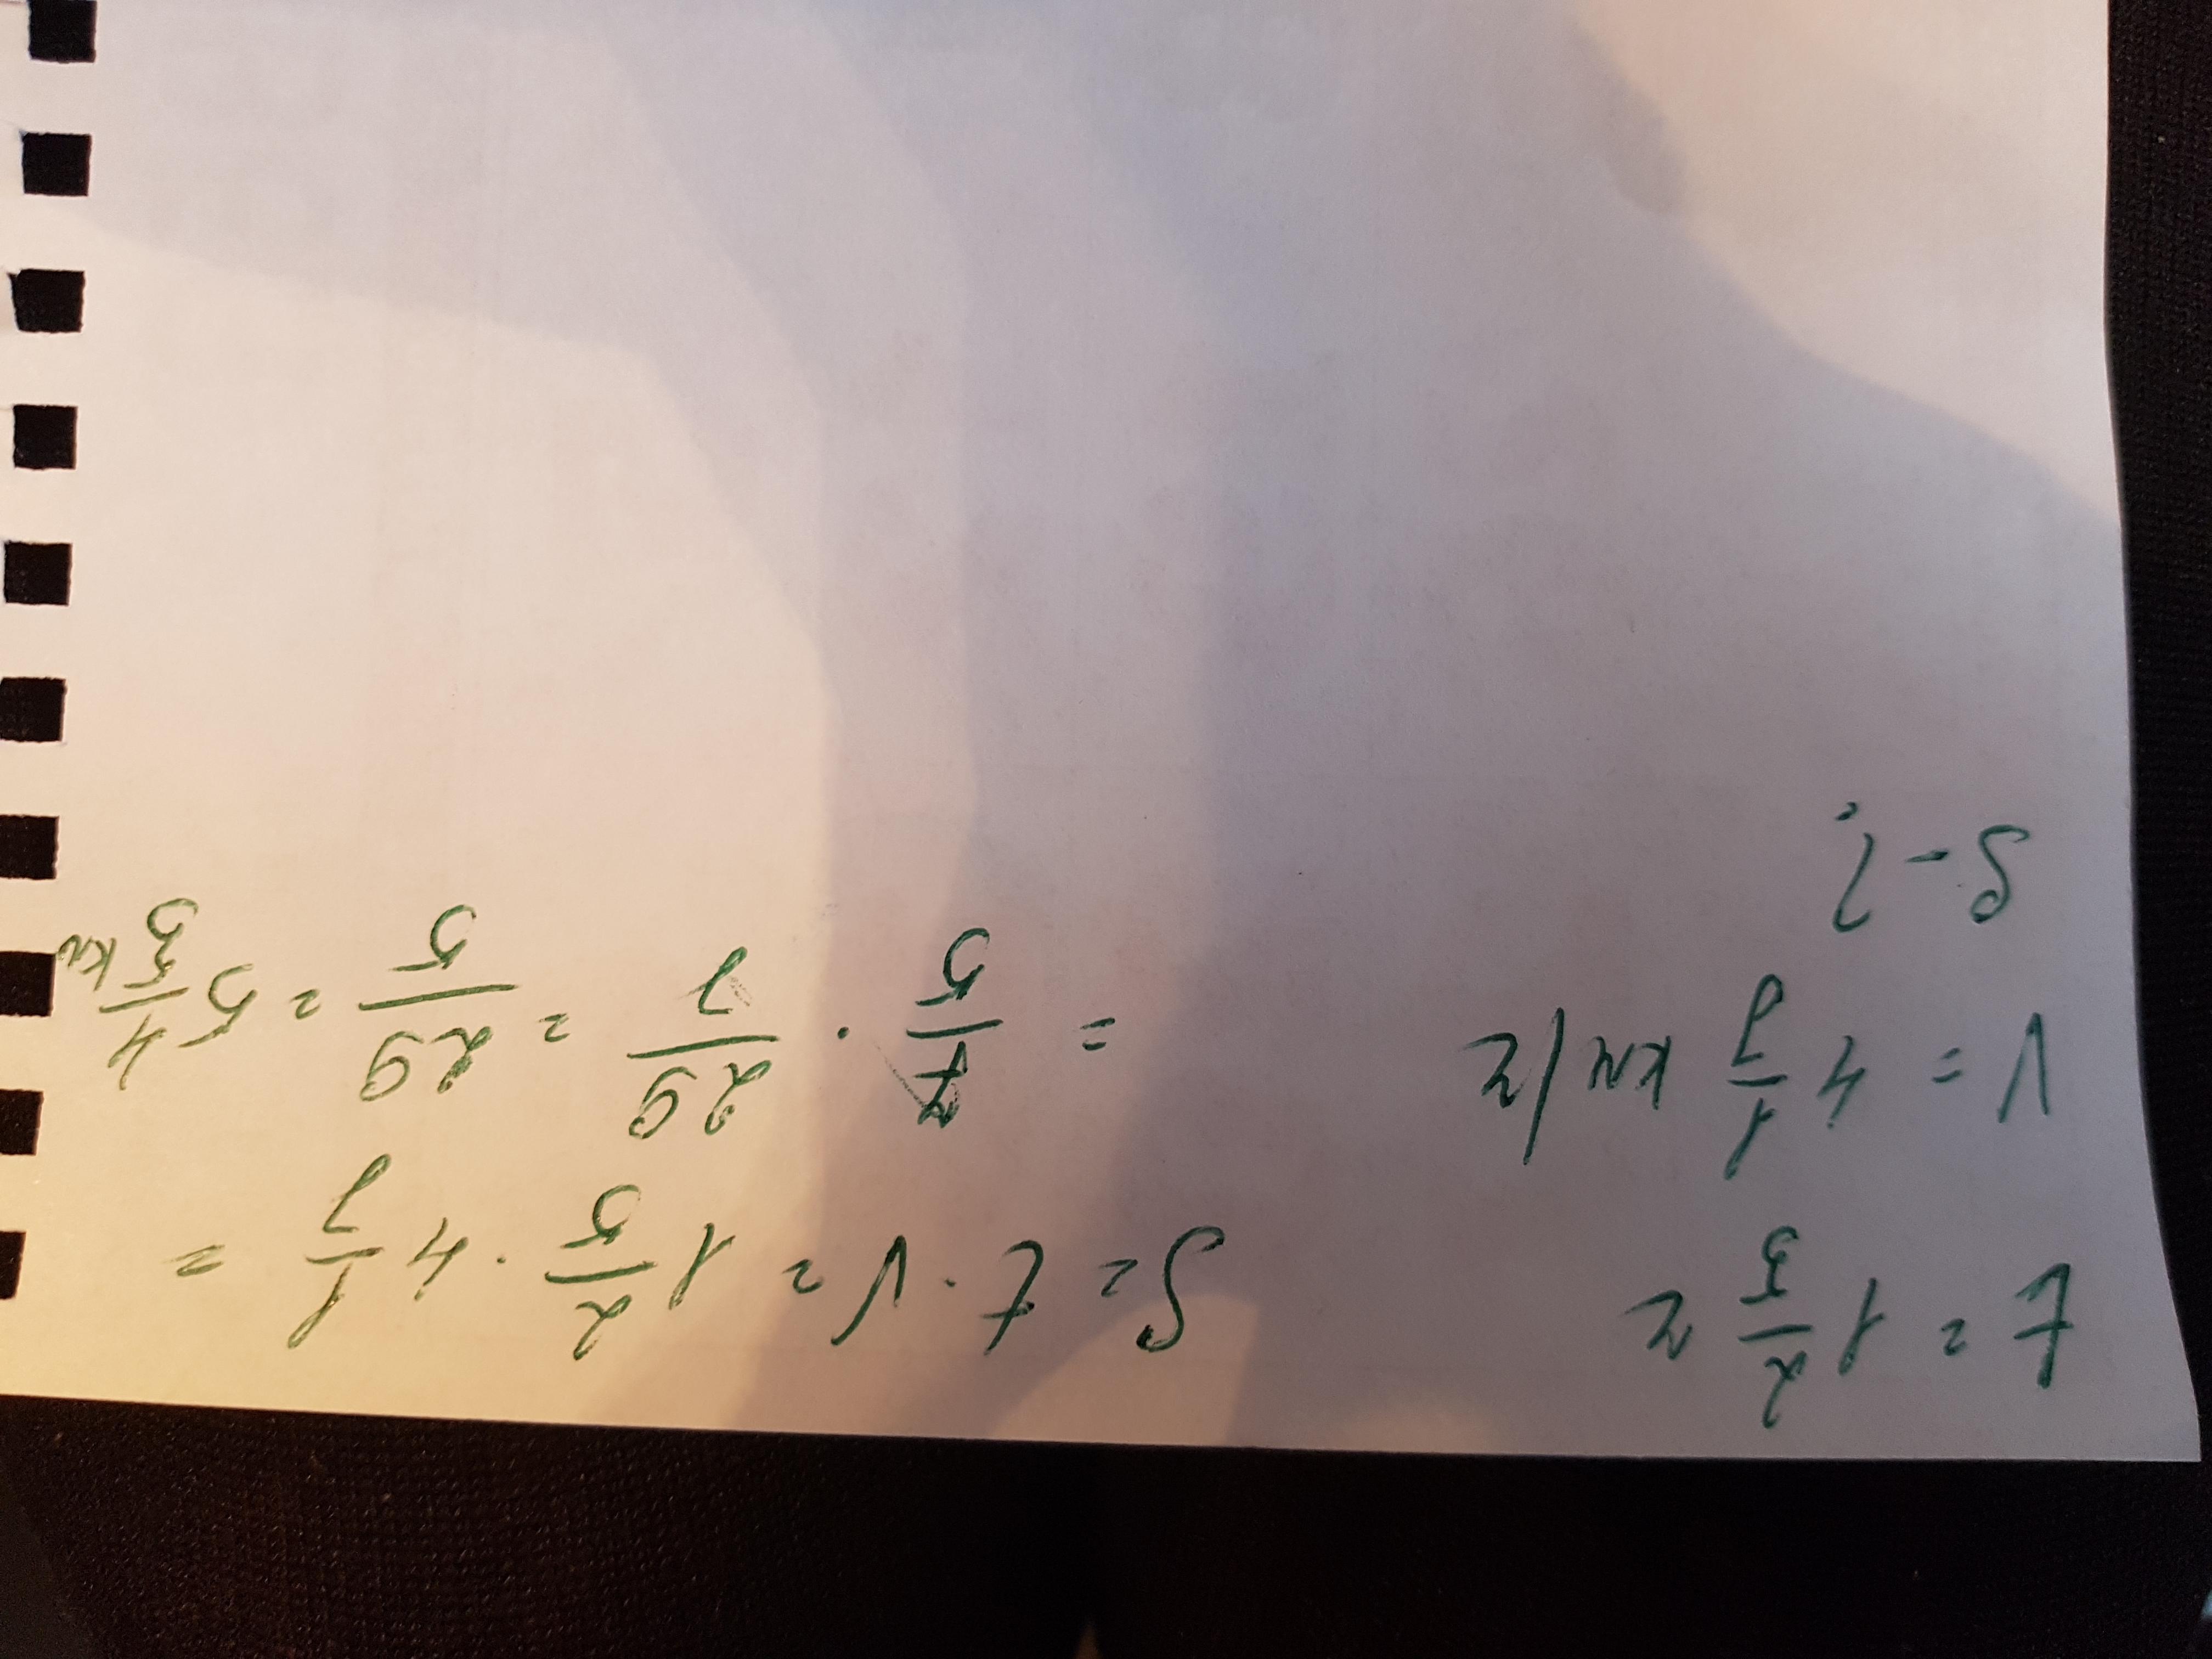 t = 1 2/5 г
V = 4 1/7 км/г
S - ?
S = t · V = 1 2/5 · 4 1/7 =
= 7/5 · 29/7 = 29/5 = 5 4/5 км